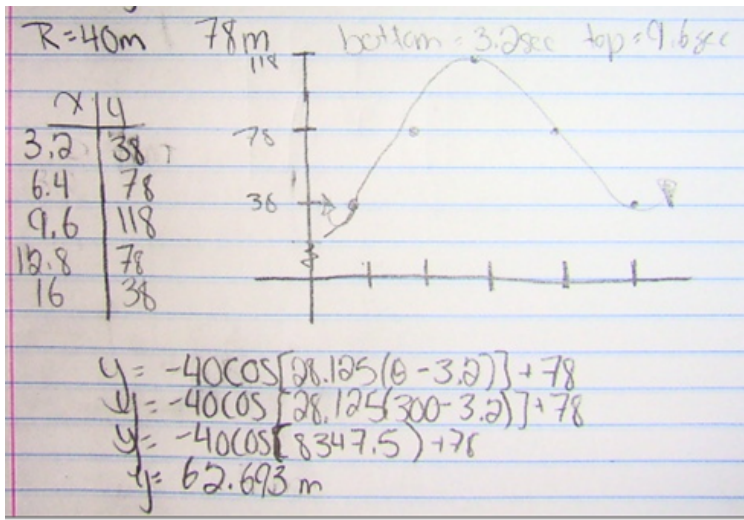 R=40m 78m bottom = 3.2sec top = 9.6sec
118
x y
3.2 38
78
6.4 78
38
9.6 118
12.8 78
16 38
y = -40cos[28.125(θ-3.2)]+78
y = -40cos[28.125(300-3.2)]+78
y = -40cos[8347.5)+78
y = 62.693 m